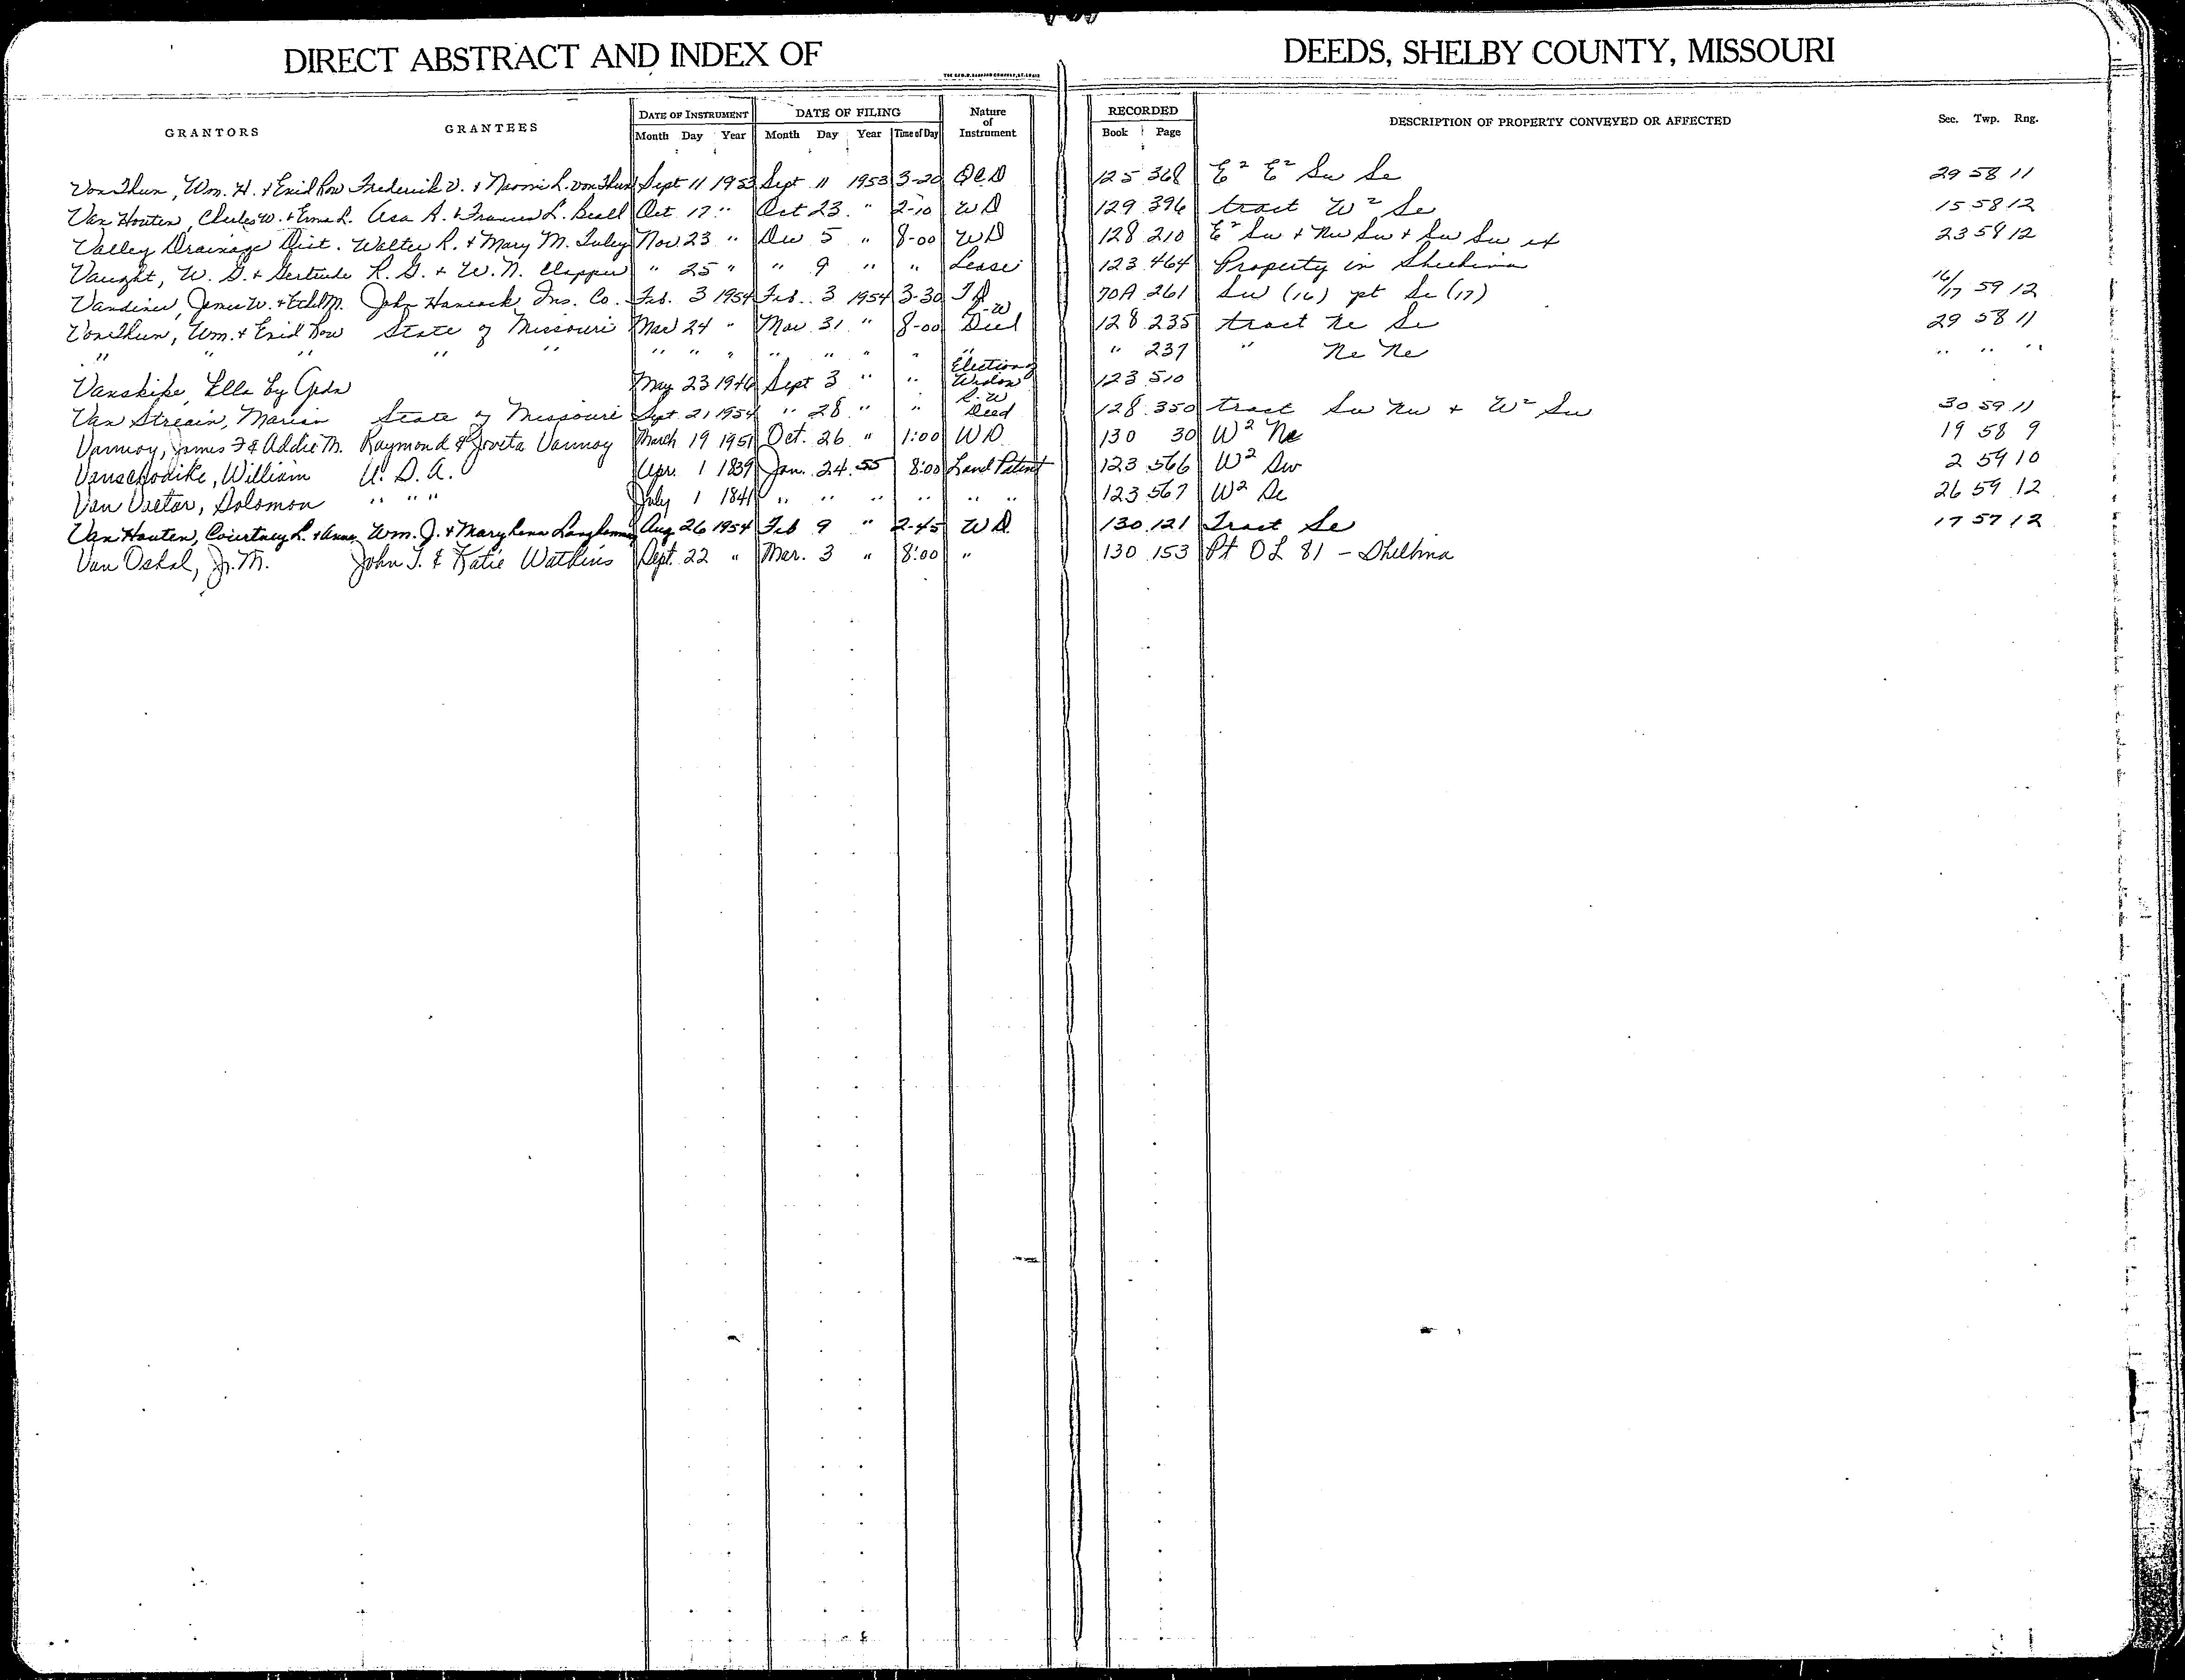 DIRECT ABSTRACT AND INDEX OF DEEDS, SHELBY COUNTY, MISSOURI
GRANTORS GRANTEES DATE OF INSTRUMENT Month Day Year DATE OF FILING Month Day Year Time of Day Nature of Instrument RECORDED Book Page DESCRIPTION OF PROPERTY CONVEYED OR AFFECTED Sec. Twp. Rng.
VonThun, Wm. H. & Enid Row Frederick V. & Naomi L. vonThun Sept 11 1953 Sept 11 1953 3-20 QCD 125 368 E² E² Sw Se 29 58 11
Van Houten, Charles W. & Erma L. Asa A. & Frances L. Beall Oct 17 " Oct 23 " 2-10 WD 129 396 tract W² Se 15 58 12
Valley Drainage Dist. Walter R. & Mary M. Nov 23 " Dec 5 " 8-00 WD 128 210 E² Sw + Nw Sw + Sw Sw ex 23 59 12
Vaught, W. G. & Gertrude R. G. & W. N. Clapper " 25 " " 9 " " Lease 123 464 Property in Shelbina
Vandiver, James W. & Ethel M. John Hancock Ins. Co. Feb. 3 1954 Feb. 3 1954 3-30 TD 70A 261 Sw (16) pt Se (17) 16/17 59 12
VonThun, Wm. & Enid Row State of Missouri Mar 24 " Mar 31 " 8-00 R-W Deed 128 235 tract Ne Se 29 58 11
" " " " " " " " " " " " " " 237 " Ne Ne " " "
Vanskike, Ella by Grdn May 23 1946 Sept 3 " " Election of Widow 123 510
Van Streain, Marian State of Missouri Sept. 21 1954 " 28 " " R.W Deed 128 350 tract Sw Nw + W² Sw 30 59 11
Vannoy, James F & Addie M. Raymond & Jovita Vannoy March 19 1951 Oct. 26 " 1:00 WD 130 30 W² Ne 19 58 9
Vanschodike, William U. S. A. Apr. 1 1839 Jan. 24 55 8:00 Land Patent 123 566 W² Sw 2 59 10
Solomon " " " July 1 1841 " " " " " " 123 567 W² Se 26 59 12
Van Houten, Courtney L. & Anna Wm. J. & Mary Lena Aug 26 1954 Feb 9 " 2-45 WD 130 121 Tract Se 17 57 12
Van Oskol, J. M. John T. & Katie Watkins Sept. 22 " Mar. 3 " 8:00 " 130 153 Pt OL 81 - Shelbina